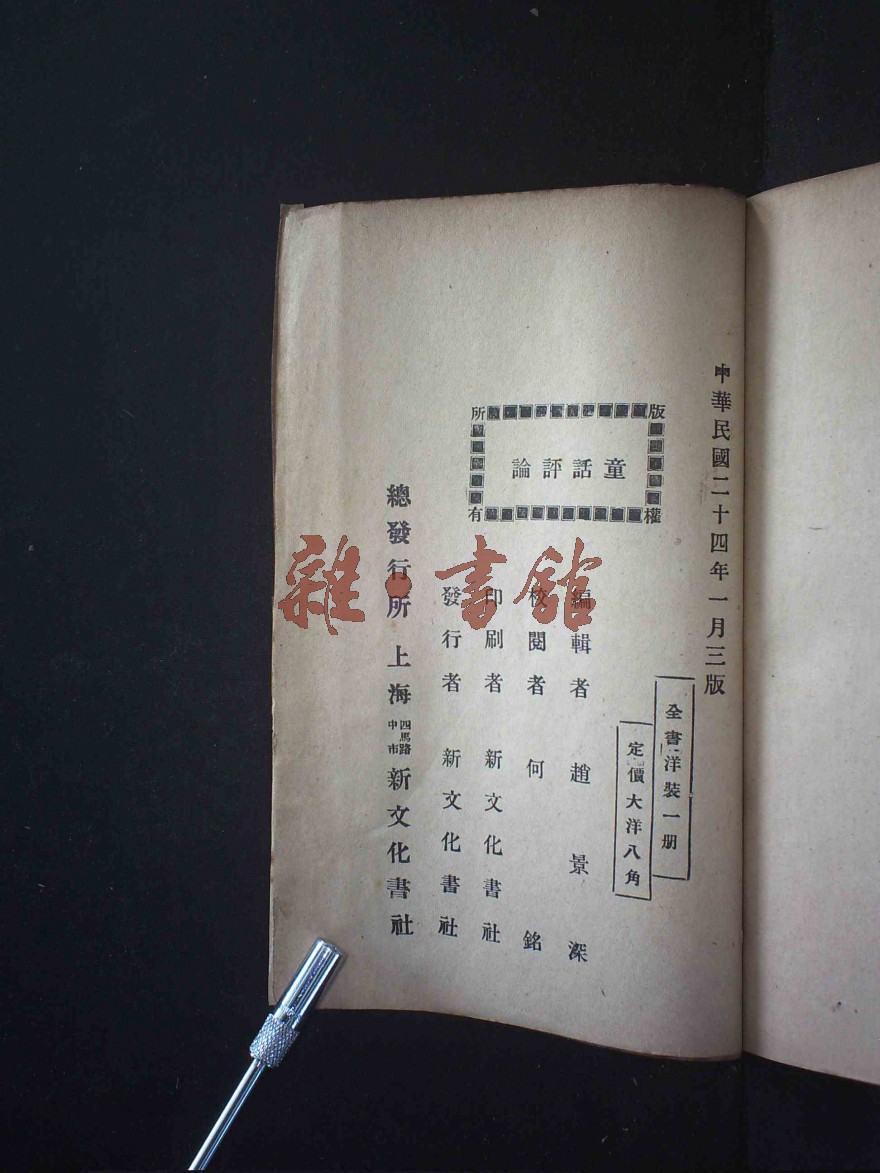 中華民國二十四年一月三版
全書洋裝一册
定價大洋八角
版權所有
童話評論
編輯者 趙景深
校閱者 何銘
印刷者 新文化書社
發行者 新文化書社
總發行所 上海四馬路中市新文化書社
雜·書館